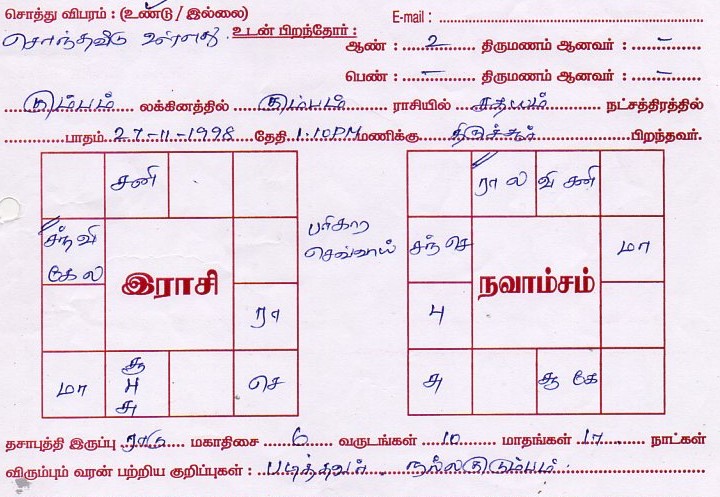 சொத்து விபரம் : (உண்டு / இல்லை) E-mail :
சொந்தவீடு உள்ளது உடன் பிறந்தோர் :
ஆண் : 2 திருமணம் ஆனவர் : –
பெண் : – திருமணம் ஆனவர் : –
கும்பம் லக்கினத்தில் கும்பம் ராசியில் சதயம் நட்சத்திரத்தில்
பாதம் 27-11-1998 தேதி 1:10PM மணிக்கு பிறந்தவர்.
சனி
சந் வி
கே ல
இராசி
ரா
மா
சூ
பு
சு
செ
பரிகார
செவ்வாய்
ரா ல வி சனி
சந் செ
மா
நவாம்சம்
பு
சு
சூ கே
தசாபுத்தி இருப்பு ராகு மகாதிசை 6 வருடங்கள் 10 மாதங்கள் 17 நாட்கள்
விரும்பும் வரன் பற்றிய குறிப்புகள் : படித்தவர் நல்லகுடும்பம்